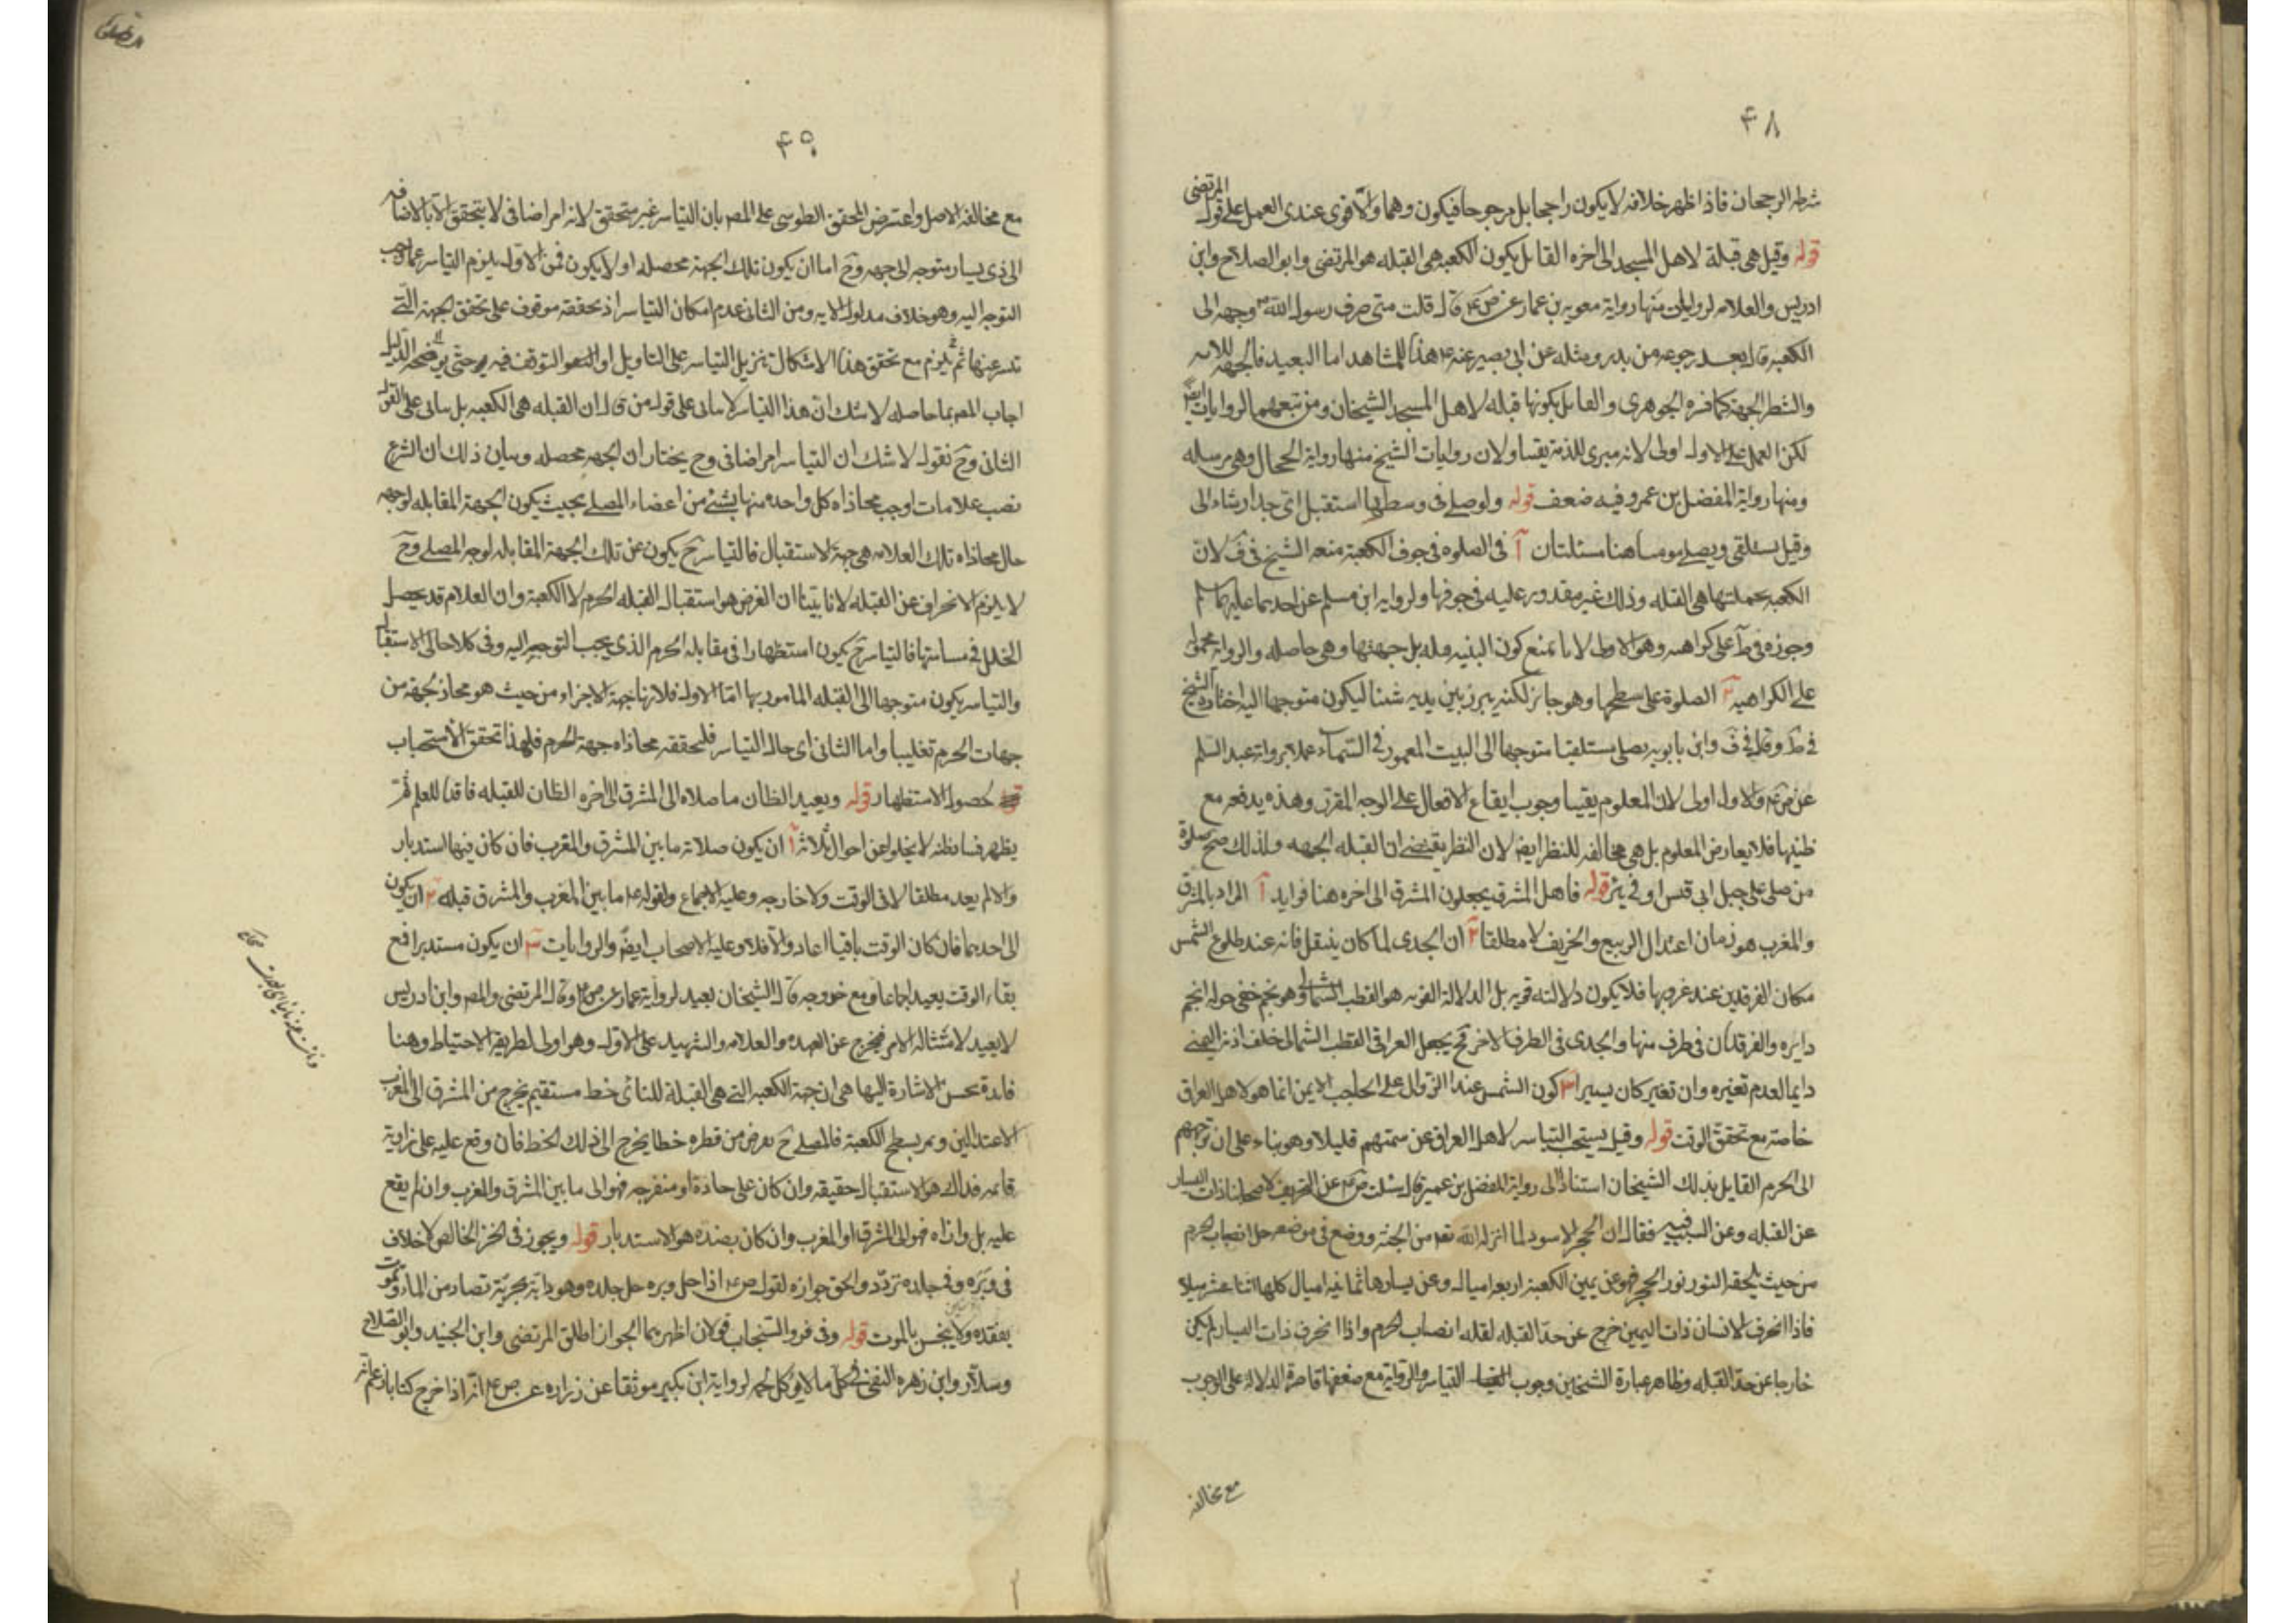 ۴۸
شرطه الرجحان فاذا ظهر خلافه لا يكون راجحا بل مرجوحا فيكون وهما والاقوى عندى العمل على قول المرتضى
قوله وقيل هى قبلة لاهل المسجد الى اخره القايل بكون الكعبه هى القبله هو المرتضى وابو الصلاح وابن
ادريس والعلامه لروايات منها رواية معويه بن عمار عن ص ع قال قلت متى صرف رسول الله ص وجهه الى
الكعبه قال بعد رجوعه من بدر ومثله عن ابى بصير عنه ع هذا للمشاهد اما البعيد فالجهه للايه
والشطر الجهة كما فسره الجوهرى والقايل بكونها قبله لاهل المسجد الشيخان ومن تبعهما لروايات ايض
لكن العمل على الاول اولى لانه مبرى للذمة يقينا ولان روايات الشيخ منها رواية الحجال وهى مرسله
ومنها رواية المفضل بن عمر وفيه ضعف قوله ولو صلى فى وسطها استقبل اى جدار شاء الى
وقيل يستلقى ويصلى موميا هنا مسئلتان آ فى الصلوة فى جوف الكعبة منعه الشيخ فى ف لان
الكعبه بجملتها هى القبله وذلك غير مقدور عليه فى جوفها ولروايه ابن مسلم عن احدهما عليهما
وجوزه فى ط على كراهيه وهو الاولى لانا نمنع كون البنيه قبله بل جهتها وهى حاصله والروايه محمولة
على الكراهيه ب الصلوة على سطحها وهو جائز لكنه يبرز بين يديه شيئا ليكون متوجها اليه اختاره الشيخ
فى ط وقال فى ف وابن بابويه يصلى مستلقيا متوجها الى البيت المعمور فى السماء عملا برواية عبد السلم
عن ض ع والاول اولى لان المعلوم يقينا وجوب ايقاع الافعال على الوجه المقرر وهذه يدفعه مع
ظنيتها فلا يعارض المعلوم بل هى مخالفه للنظر ايض لان النظر يقتضى ان القبله الجهه ولذلك صح صلوة
من صلى على جبل ابى قبيس او فى بئر قوله فاهل المشرق يجعلون المشرق الى اخره هنا فوايد آ المراد بالمشرق
والمغرب هو زمان اعتدال الربيع والخريف لا مطلقا ٢ ان الجدى لما كان ينتقل فانه عند طلوع الشمس
مكان الفرقدين عند غروبها فلا يكون دلالته قويه بل الدلالة القويه هو القطب الشمالى وهو نجم خفى حوله انجم
دايره والفرقدان فى طرف منها والجدى فى الطرف الاخر فح يجعل العراقى القطب الشمالى خلف اذنه اليمنى
دايما لعدم تغيره وان تغير كان يسيرا ٣ كون الشمس عند الزوال على الحاجب الايمن انما هو لاهل العراق
خاصة مع تحقق الوقت قوله وقيل يستحب التياسر لاهل العراق عن سمتهم قليلا وهو بناء على ان توجههم
الى الحرم القايل بذلك الشيخان استنادا الى رواية المفضل بن عمير قال سئلت ص ع عن التحريف لاصحابنا ذات اليسار
عن القبله وعن السبب فيه فقال ان الحجر الاسود لما انزله الله تعه من الجنة ووضع فى موضعه جعل انصاب الحرم
من حيث لحقه النور نور الحجر فهو عن يمين الكعبة اربعة اميال وعن يسارها ثمانيه اميال كلها اثنا عشر ميلا
فاذا انحرف الانسان ذات اليمين خرج عن حد القبله لقله انصاب الحرم واذا انحرف ذات اليسار لم يكن
خارجا عن حد القبله وظاهر عبارة الشيخين وجوب التياسر والرواية مع ضعفها قاصرة الدلالة على الوجوب
مع مخالفة
۴۹
مع مخالفة الاصل واعترض المحقق الطوسى على المصه بان التياسر غير متحقق لانه امر اضافى لا يتحقق الا بالاضافه
الى ذى يسار متوجه الى جهه وح اما ان يكون تلك الجهة محصله او لا يكون فمن الاول يلزم التياسر عما وجب
التوجه اليه وهو خلاف مدلول الايه ومن الثانى عدم امكان التياسر اذ تحققه موقوف على تحقق الجهة التى
تياسر عنها ثم يلزم مع تحقق هذا الاشكال تنزيل التياسر على التاويل او التوقف فيه حتى يوضحه الدليل
اجاب المصه بما حاصله لا شك ان هذا التياسر لا ياتى على قول من قال ان القبله هى الكعبه بل ياتى على القول
الثانى وح نقول لا شك ان التياسر امر اضافى وح يختار ان الجهه محصله وبيان ذلك ان الشرع
نصب علامات اوجب محاذاه كل واحده منها بشئ من اعضاء المصلى بحيث يكون الجهة المقابله لوجهه
حال محاذاه تلك العلامه هى جهة الاستقبال فالتياسر ح يكون عن تلك الجهة المقابله لوجه المصلى وح
لا يلزم الانحراف عن القبله لانا بينا ان الفرض هو استقبال القبله الحرم لا الكعبة وان العلام قد يحصل
الخلل فى مسامتتها فالتياسر ح يكون استظهارا فى مقابله الحرم الذى يجب التوجه اليه وفى كلا حالى الاستقبال
والتياسر يكون متوجها الى القبله المامور بها اما الاول فلانها جهة الاجزاء من حيث هو محاذ لجهة من
جهات الحرم تغليبا واما الثانى اى حال التياسر فلتحققه محاذاه جهة الحرم فلهذا تحقق الاستحباب
لحصول الاستظهار قوله ويعيد الظان ما صلاه الى المشرق الى اخره الظان للقبله فاقدا للعلم ثم
يظهر فساد ظنه لا يخلو عن احوال ثلاثة آ ان يكون صلاته ما بين المشرق والمغرب فان كان فيها استدار
والا لم يعد مطلقا لا فى الوقت ولا خارجه وعليه الاجماع ولقوله ع ما بين المغرب والمشرق قبله ٢ ان يكون
الى احدهما فان كان الوقت باقيا اعاد والا فلا وعليه الاصحاب ايض والروايات ٣ ان يكون مستدبرا فمع
بقاء الوقت يعيد اجماعا ومع خروجه قال الشيخان يعيد لرواية عمار عن ص ع وقال المرتضى والمصه وابن ادريس
لا يعيد لامتثاله الامر فيخرج عن العهده والعلامه والشهيد على الاول وهو اولى لطريقة الاحتياط وهنا
فائدة يحسن الاشارة اليها هى ان جهة الكعبه التى هى القبلة للنائى خط مستقيم يخرج من المشرق الى المغرب
الاعتدالين ويمر بسطح الكعبة فالمصلى ح يفرض من قطره خطا يخرج الى ذلك الخط فان وقع عليه على زاوية
قائمه فذاك هو الاستقبال حقيقه وان كان على حادة او منفرجه فهو الى ما بين المشرق والمغرب وان لم يقع
عليه بل وازاه فهو الى المشرق او المغرب وان كان بضده هو الاستدبار قوله ويجوز فى الخز الخالص لا خلاف
فى وبره وفى جلده تردد والحق جوازه لقول ص ع اذا حل وبره حل جلده وهو دابة بحرية تصاد من الماء وتموت
بفقده ولا ينجس بالموت قوله وفى فرو السنجاب قولان اظهرهما الجواز اطلق المرتضى وابن الجنيد وابو الصلاح
وسلار وابن زهره النفى فى كل ما لا يوكل لحمه لرواية ابن بكير موثقا عن زراره عن ص ع انه اذا خرج كتابا زعم انه